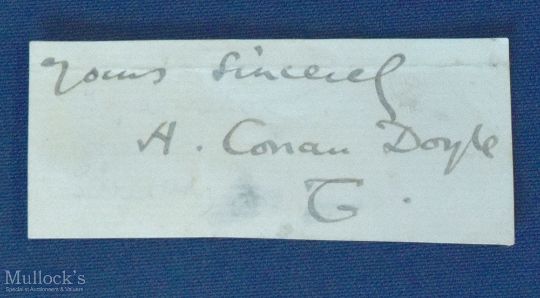 Yours Sincerely
A. Conan Doyle
T.
Mullock's
Specialist Auctioneers & Valuers